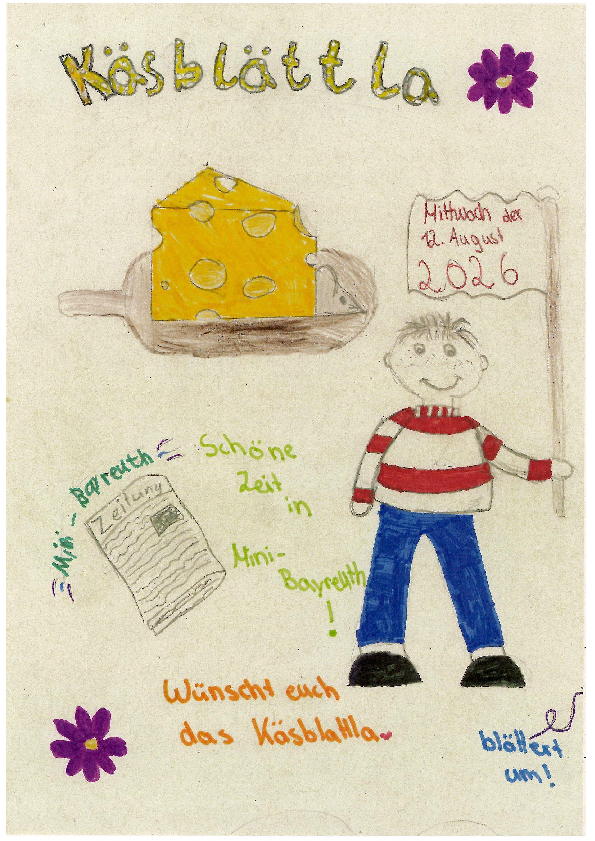 Käsblättla
Mittwoch der
12. August
2026
Mini-Bayreuth
Zeitung
Schöne
Zeit
in
Mini-
Bayreuth
!
Wünscht euch
das Käsblattla
blättert
um!